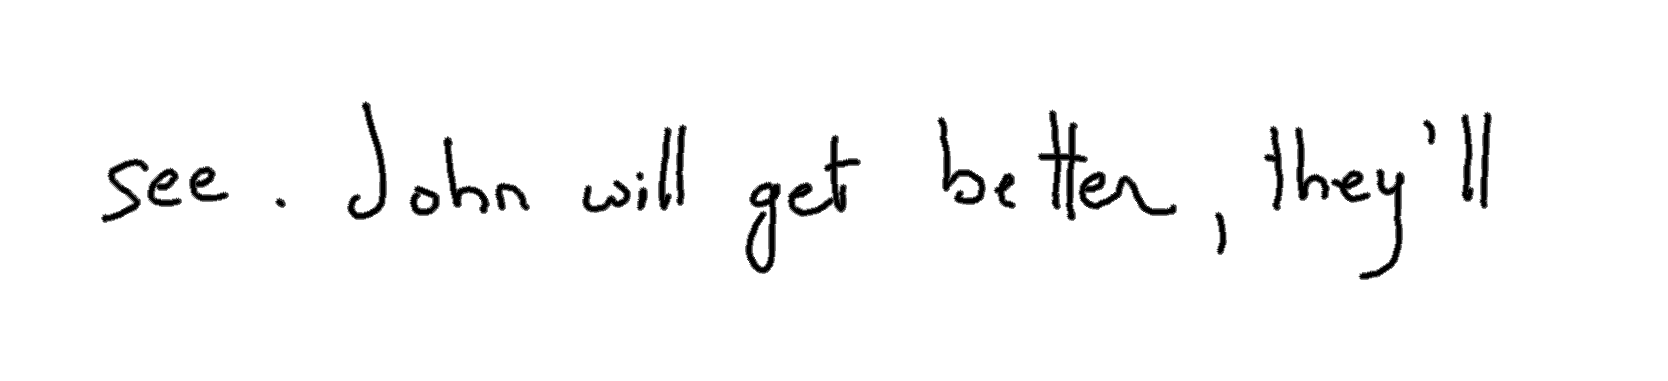 see. John will get better, they'll